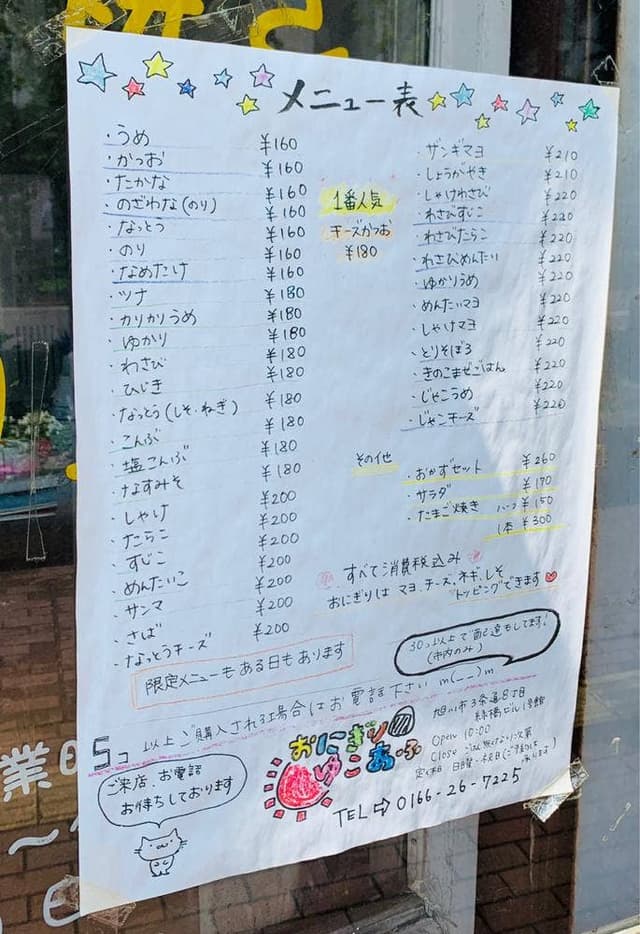 メニュー表
・うめ ¥160
・かつお ¥160
・たかな ¥160
・のざわな(のり) ¥160
・なっとう ¥160
・のり ¥160
・なめたけ ¥160
・ツナ ¥180
・カリカリうめ ¥180
・ゆかり ¥180
・わさび ¥180
・ひじき ¥180
・なっとう(しそ・ねぎ) ¥180
・こんぶ ¥180
・塩こんぶ ¥180
・なすみそ ¥180
・しゃけ ¥200
・たらこ ¥200
・すじこ ¥200
・めんたいこ ¥200
・サンマ ¥200
・さば ¥200
・なっとうチーズ ¥200
1番人気
チーズかつお
¥180
・ザンギマヨ ¥210
・しょうがやき ¥210
・しゃけわさび ¥220
・わさびすじこ ¥220
・わさびたらこ ¥220
・わさびめんたい ¥220
・ゆかりうめ ¥220
・めんたいマヨ ¥220
・しゃけマヨ ¥220
・とりそぼろ ¥220
・きのこまぜごはん ¥220
・じゃこうめ ¥220
・じゃこチーズ ¥220
その他
・おかずセット ¥260
・サラダ ¥170
・たまご焼き ハーフ ¥150
1本 ¥300
すべて消費税込み
おにぎりは マヨ、チーズ、ネギ、しそ
トッピングできます
限定メニューもある日もあります
30コ以上で配達もしてます!
(市内のみ)
5コ以上ご購入される場合はお電話下さい m(__)m
ご来店、お電話
お待ちしております
おにぎり
ゆこあ・ふ
旭川市3条通8丁目
緑橋ビル1号館
Open 10:00
Close
定休日:日曜・祝日
TEL⇨0166-26-7225
業時